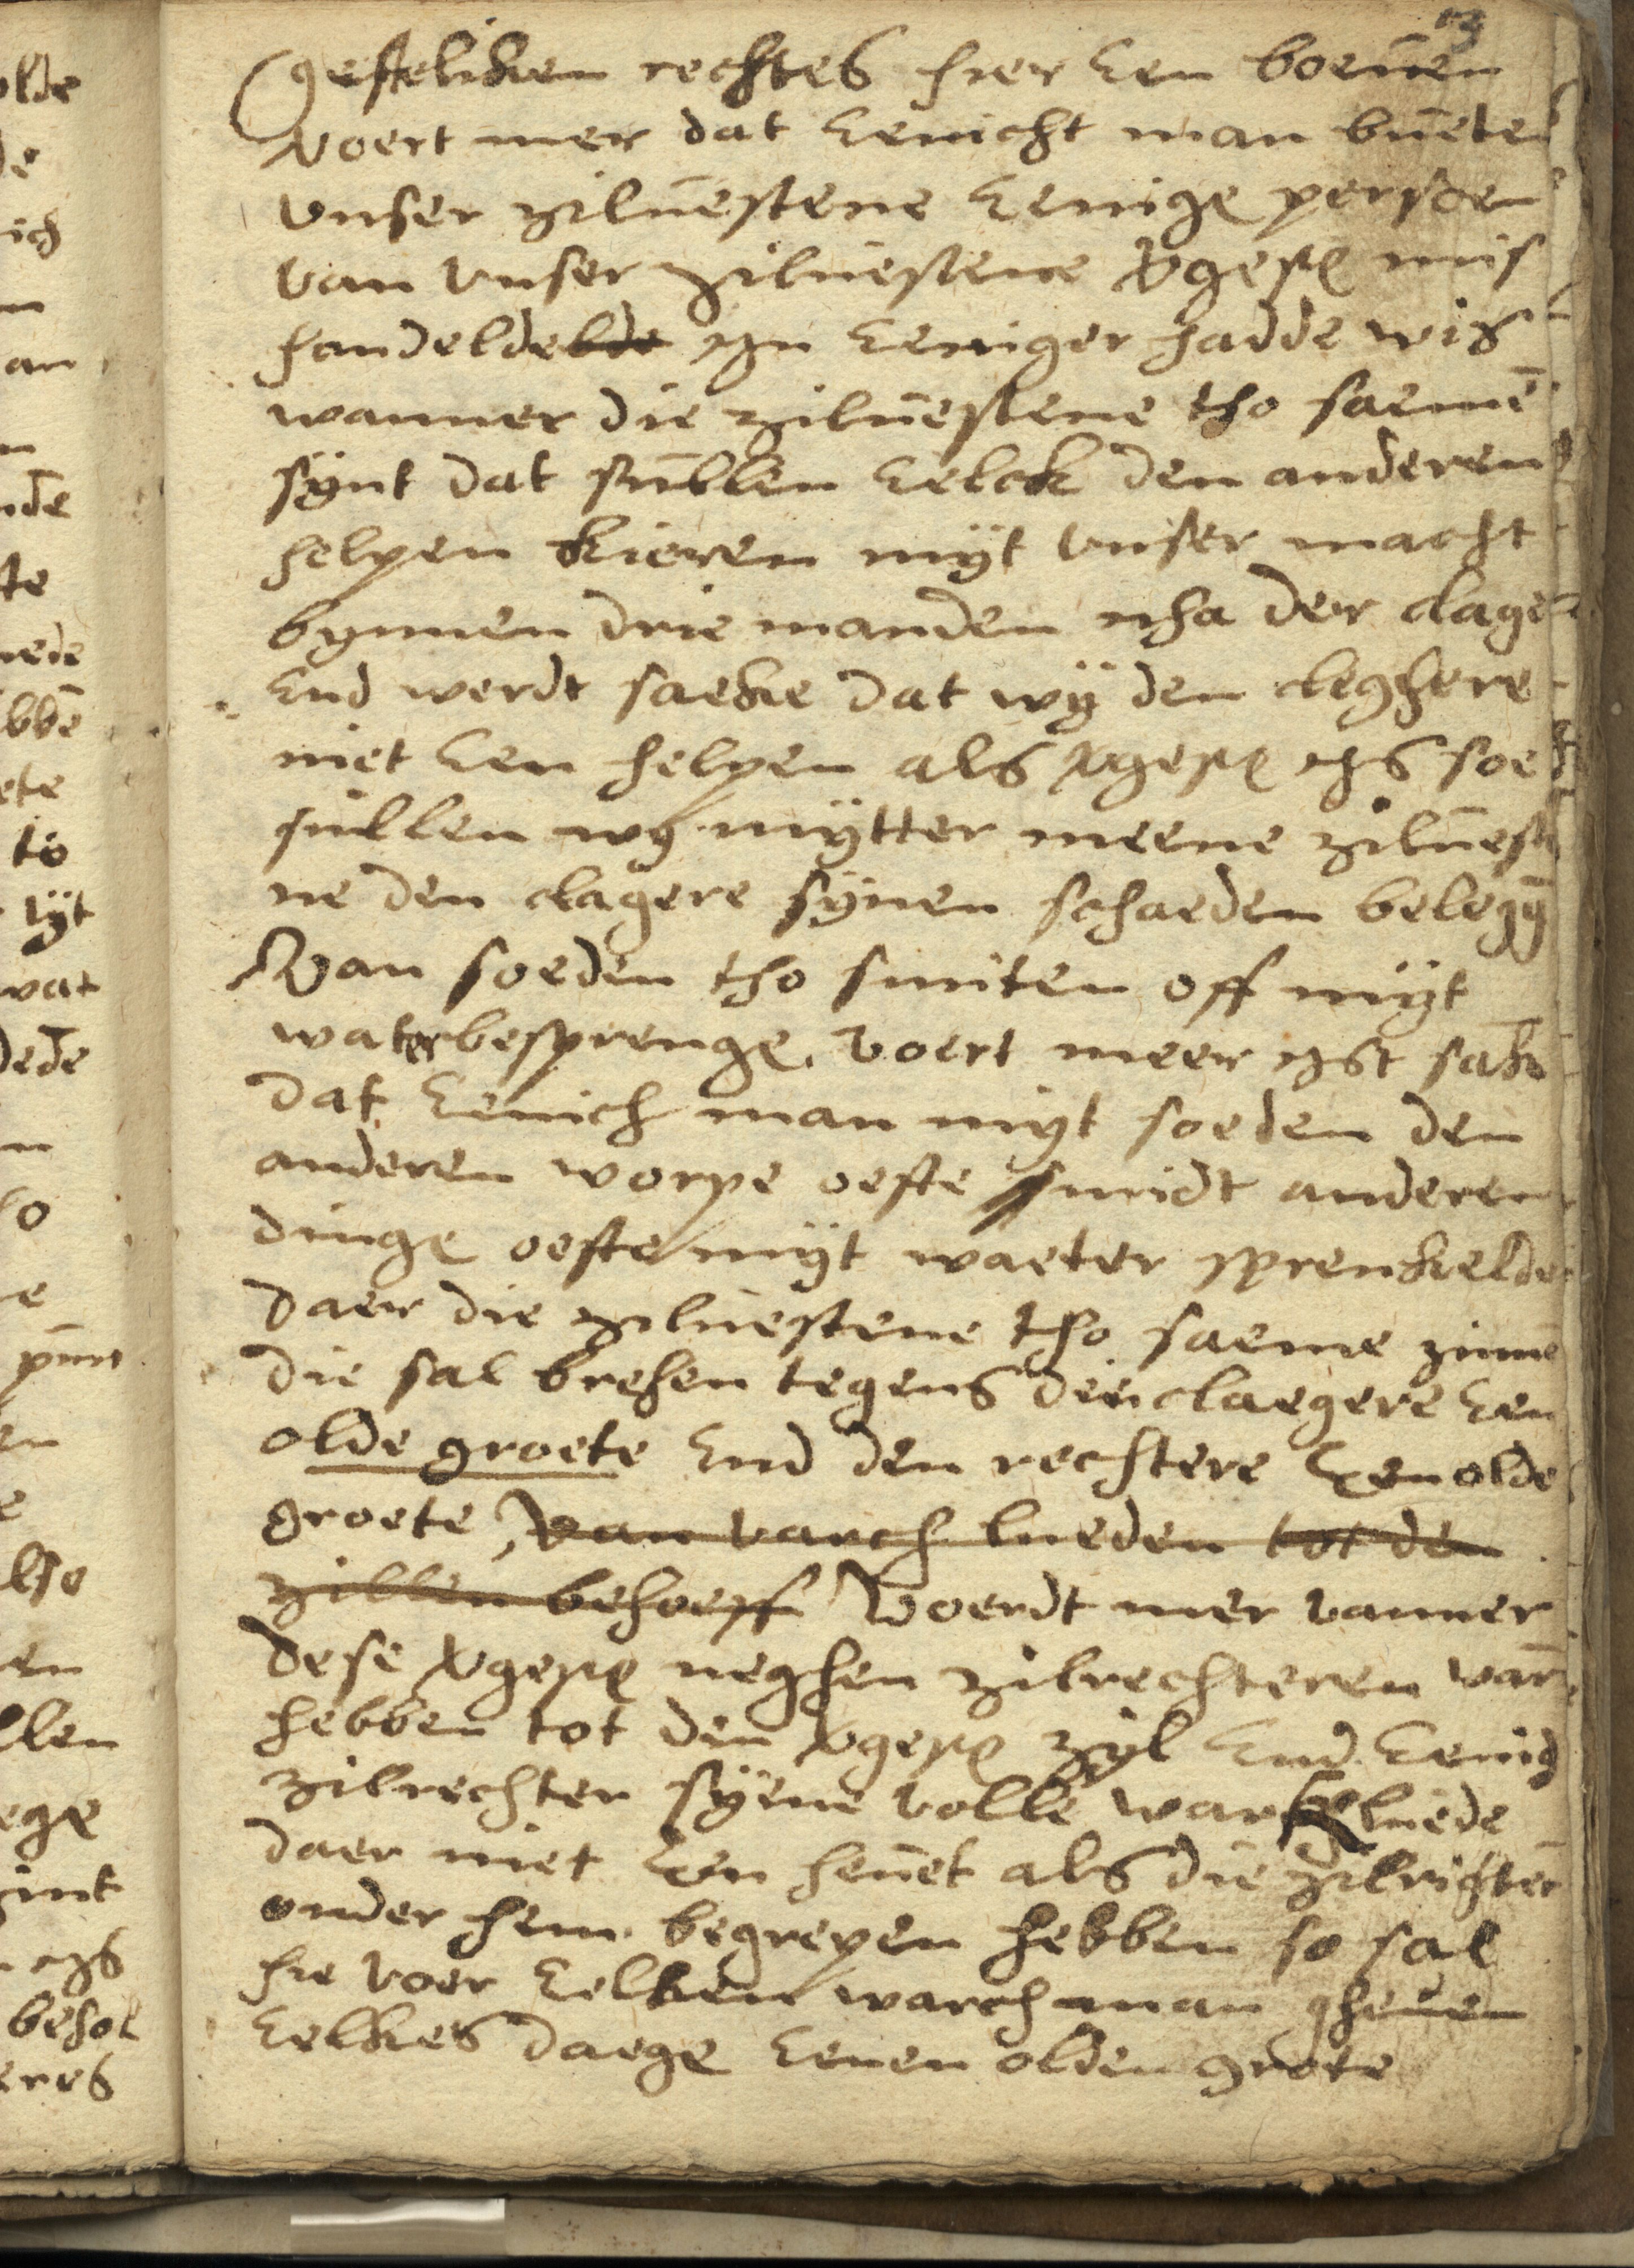 13
Gestelicken rechtes hier een boeven
Voert mer dat eenicht man buete
unser zilvestene eenige persoen
van unser zilvestene vgesz mis
handelde yn eeniger hadde wis
wanner die zilvestene tho saeme
synt dat sullen eelck den anderen
helpen kieren myt unser macht
bynnen drie manden nha der clage
End werdt saeke dat wy den cleghere
niet een helpen als vgesz ys soe
sullen wy mytter meene zilvest
ne den clagere synen schaeden belegg
Van soeden tho smiten off myt
waterbesprenge. Voert meer yst sake
dat eenich man myt soeden den
anderen worpe oefte smidt anderen
dinge oefte myt waeter sprenkelde
daer die zilvestene tho saeme zinne
die sal breken tegens den claegere een
olde groete End den rechtere Een olde
groete, van varch lueden tot den
zillen behoeff Voerdt mer vanner
dese vgesz neghen zilrechteren var
hebben tot den vgesz zyl End Eenig
zilrechter syene volle wark luede
daer niet En hevet als die zilrichter
onder hem begrepen hebben so sal
hie voer Eelken warch man gheven
Eelkes daege Eenen olden grote
olde
ich
an
nde
te
rede
bbe
ete
to
lyt
vat
dede
e
en
lso
en
llen
ege
int
ys
behol
eres